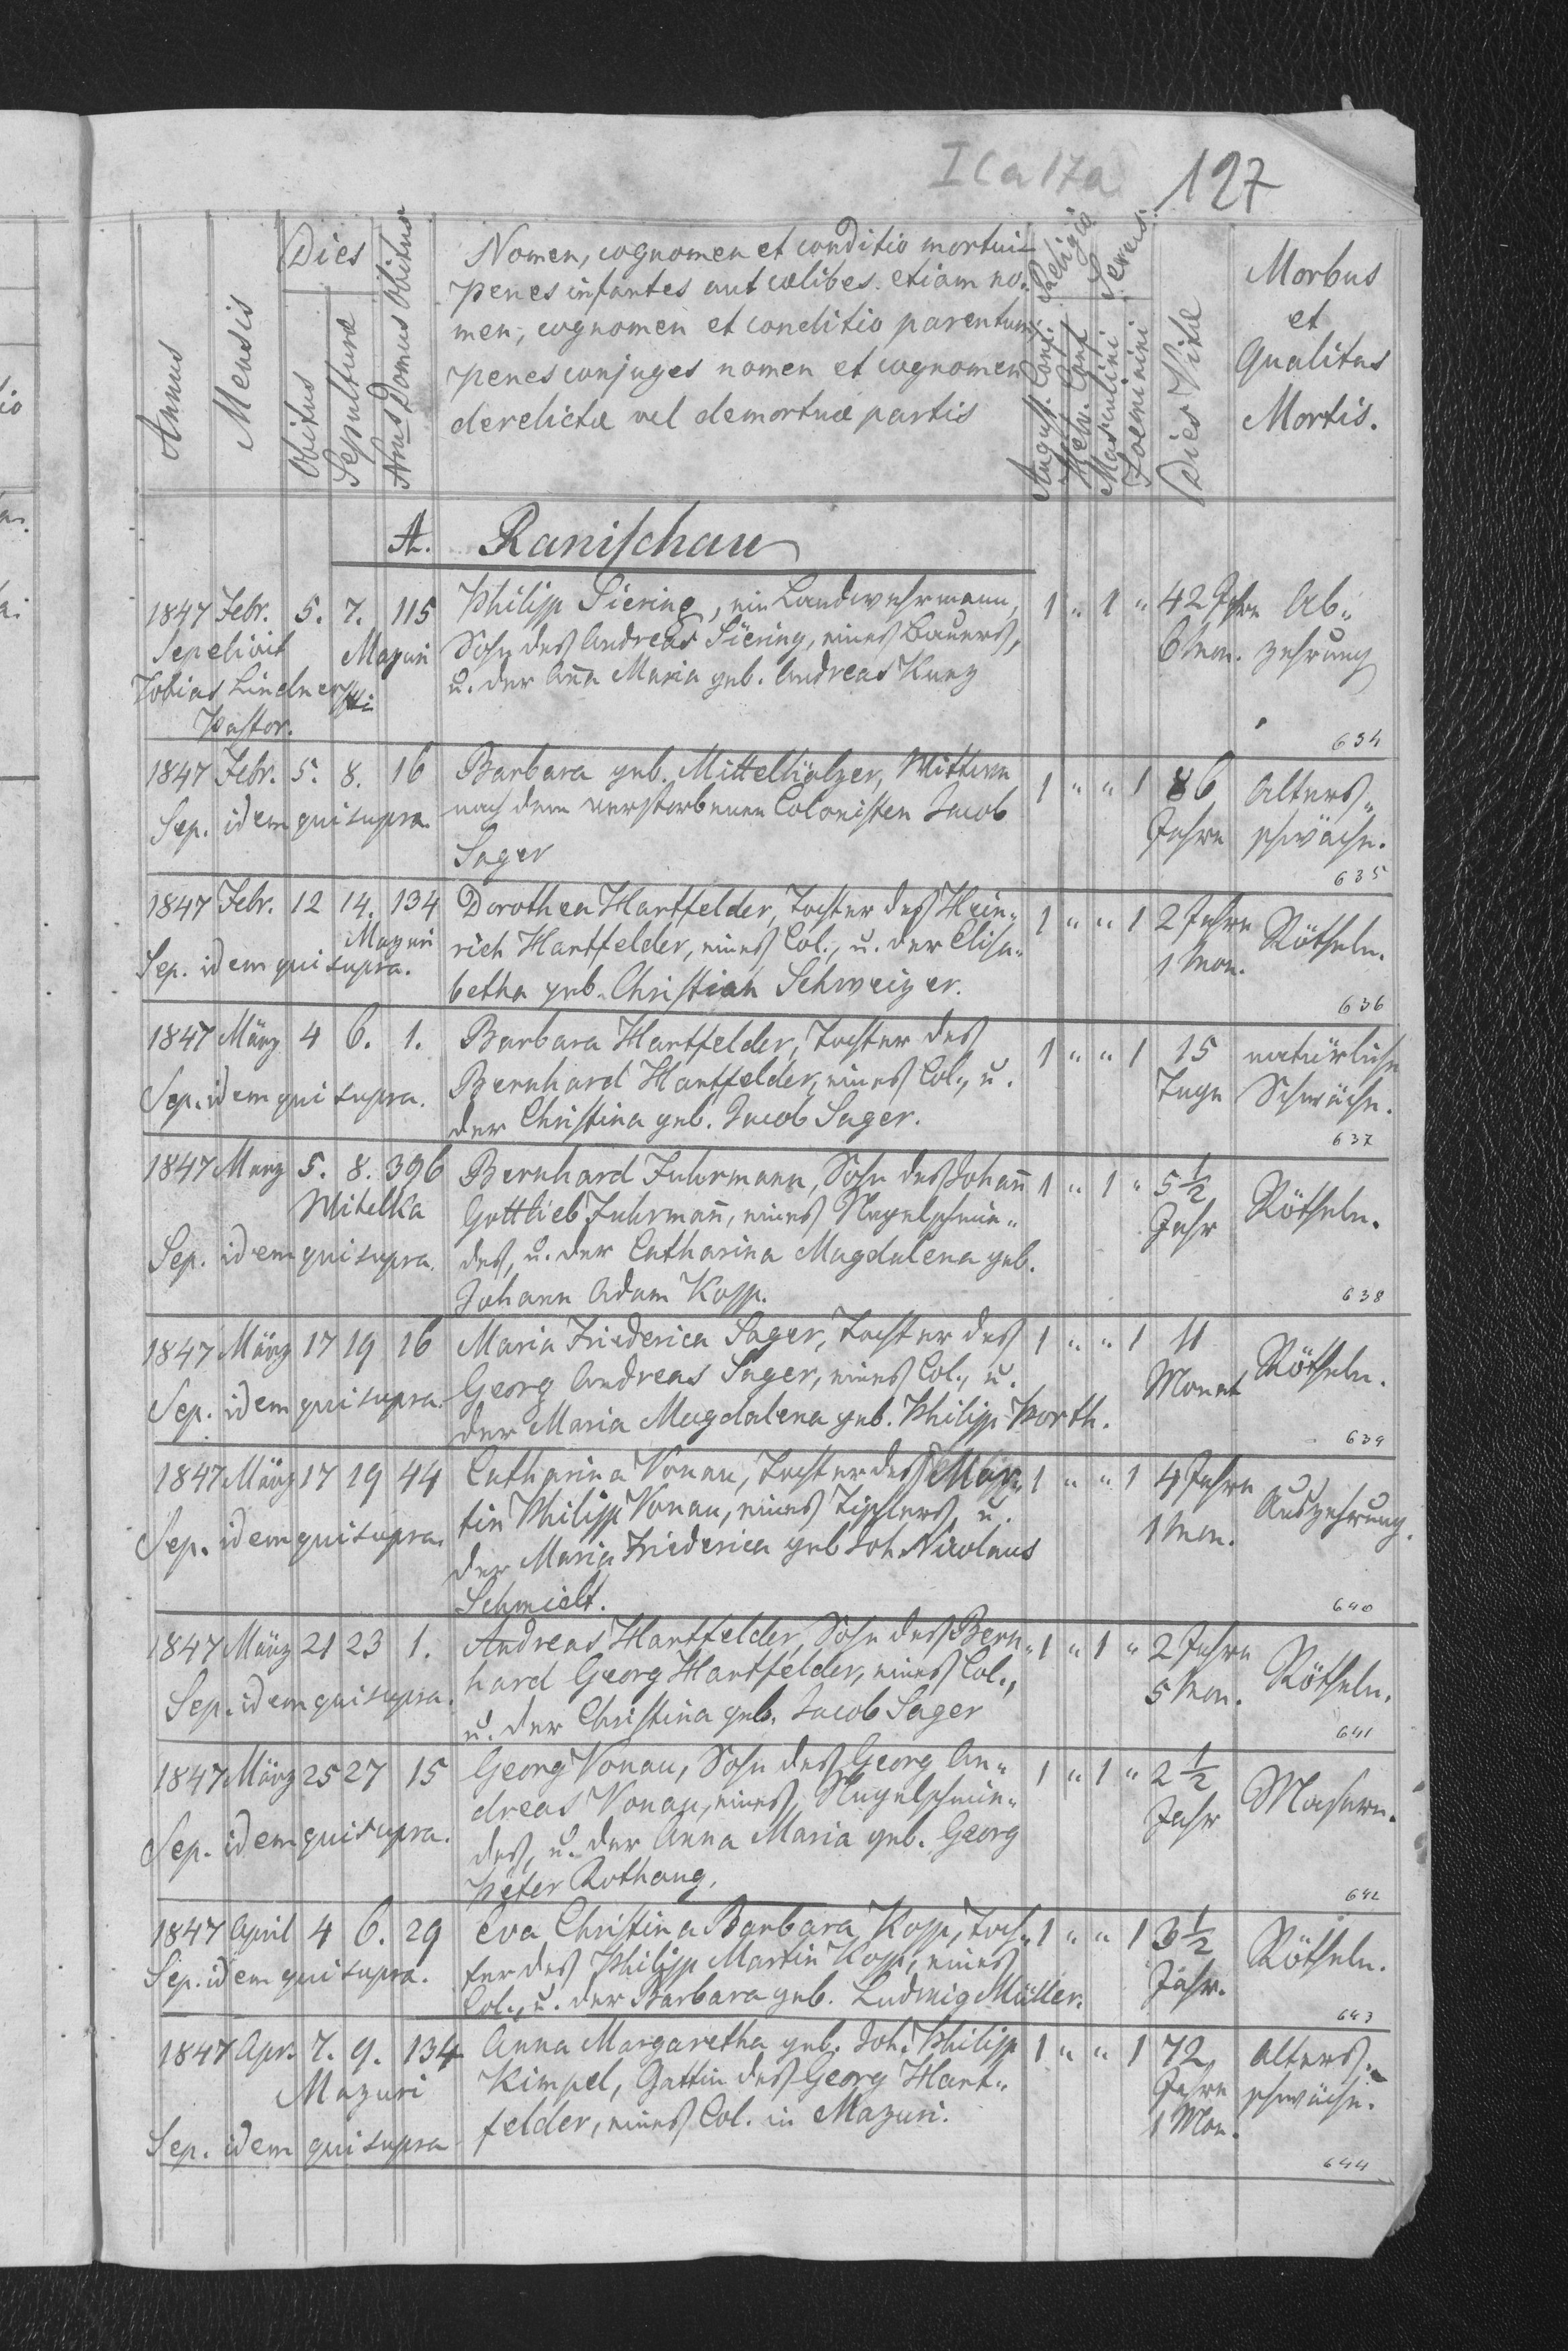 ICa17a 127
Annus
Mensis
Dies
Obitus
Sepulturæ
Nrus Domus Obitus
Nomen, cognomen et conditio mortui
penes infantes aut cœlibes etiam no-
men, cognomen et conditio parentum
penes conjuges nomen et cognomen
derelictæ vel demortuæ partis
Religio
August. Conf.
Helv. Conf.
Sexus
Masculini
Foeminini
Dies Vitæ
Morbus
et
Qualitas
Mortis.
A. Ranischau
1847 Febr. 5. 7. 115 Philipp Siering, ein Landwehrmann, 1 " 1 " 42 Jahre Ab"
Sepelivit Mazuri Sohn des Andreas Siering, eines Bauers, 6 Mon. zehrung
Tobias Lindner u. der Aña Maria geb. Andreas Kunz
Pastor.
634
1847 Febr. 5. 8. 16 Barbara geb. Mittelhölzer, Wittwe 1 " " 1 86 Alters"
Sep. idem qui supra. nach dem verstorbenen Colonisten Jacob Jahre schwäche.
Sager
635
1847 Febr. 12 14. 134 Dorothea Hartfelder, Tochter des Hein" 1 " " 1 2 Jahre Rötheln.
Mazuri rich Hartfelder, eines Col., u. der Elisa" 1 Mon.
Sep. idem qui supra. betha geb. Christian Schweizer.
636
1847 März 4 6. 1. Barbara Hartfelder, Tochter des 1 " " 1 15 natürliche
Sep. idem qui supra. Bernhard Hartfelder, eines Col., u. Tage Schwäche.
der Christina geb. Jacob Sager.
637
1847 März 5. 8. 396 Bernhard Fuhrmann, Sohn des Johañ 1 " 1 " 5 1/2 Rötheln.
Wihelka Gottlieb Fuhrmañ, eines Nagelschmie" Jahr
Sep. idem qui supra. des, u. der Catharina Magdalena geb.
Johann Adam Kopp.
638
1847 März 17 19 16 Maria Friederica Sager, Tochter des 1 " " 1 11 Rötheln.
Sep. idem qui supra. Georg Andreas Sager, eines Col., u. Monat
der Maria Magdalena geb. Philipp Porth.
639
1847 März 17 19 44 Catharina Vonau, Tochter des Mar" 1 " " 1 4 Jahre Auszehrung.
Sep. idem qui supra. tin Philipp Vonau, eines Tischlers, u. 1 Mon.
der Maria Friederica geb. Joh. Nicolaus
Schmidt.
640
1847 März 21 23 1. Andreas Hartfelder, Sohn des Bern" 1 " 1 " 2 Jahre Rötheln.
Sep. idem qui supra. hard Georg Hartfelder, eines Col., 5 Mon.
u. der Christina geb. Jacob Sager
641
1847 März 25 27 15 Georg Vonau, Sohn des Georg An" 1 " 1 " 2 1/2 Masern.
dreas Vonau, eines Nagelschmie" Jahr
Sep. idem qui supra. des, u. der Anna Maria geb. Georg
Peter Rothaug.
642
1847 April 4 6. 29 Eva Christina Barbara Kopp, Toch" 1 " " 1 3 1/2 Rötheln.
Sep. idem qui supra. ter des Philipp Martin Kopp, eines Jahr.
Col., u. der Barbara geb. Ludwig Müller.
643
1847 Apr. 7. 9. 134 Anna Margaretha geb. Joh. Philipp 1 " " 1 72 Alters"
Mazuri Kimpel, Gattin des Georg Hart" Jahre schwäche.
Sep. idem qui supra felder, eines Col. in Mazuri. 1 Mon.
644